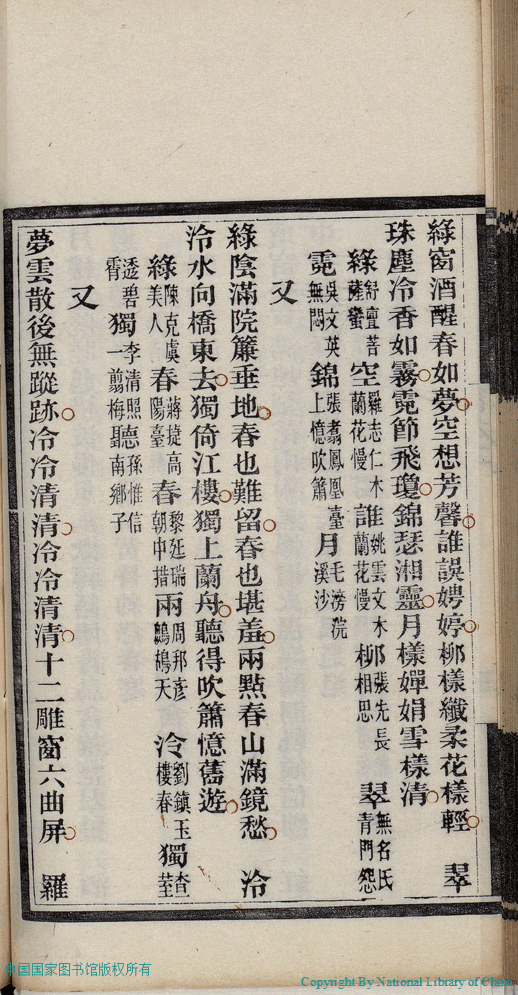 綠窗酒醒春如夢空想芳馨誰誤娉婷桺樣纖柔花樣輕 翠
珠塵冷香如霧霓節飛瓊錦瑟湘靈月樣嬋娟雪樣清
綠舒亶菩薩蠻 空羅志仁木蘭花慢 誰姚雲文木蘭花慢 桺張先長相思 翠無名氏青門怨
霓吳文英無悶 錦張翥鳳凰臺上憶吹簫 月毛滂浣溪沙
又
綠陰滿院簾垂地春也難留春也堪羞兩點春山滿鏡愁 泠
泠水向橋東去獨倚江樓獨上蘭舟聽得吹簫憶舊遊
綠陳克虞美人 春蔣捷高陽臺 春黎廷瑞朝中措 兩周邦彥鷓鴣天 泠劉鎮玉樓春 獨查荎
透碧霄 獨李清照一翦梅 聽孫惟信南鄉子
又
夢雲散後無蹤跡冷冷清清冷冷清清十二雕窗六曲屏 羅
中国国家图书馆版权所有
Copyright By National Library of China